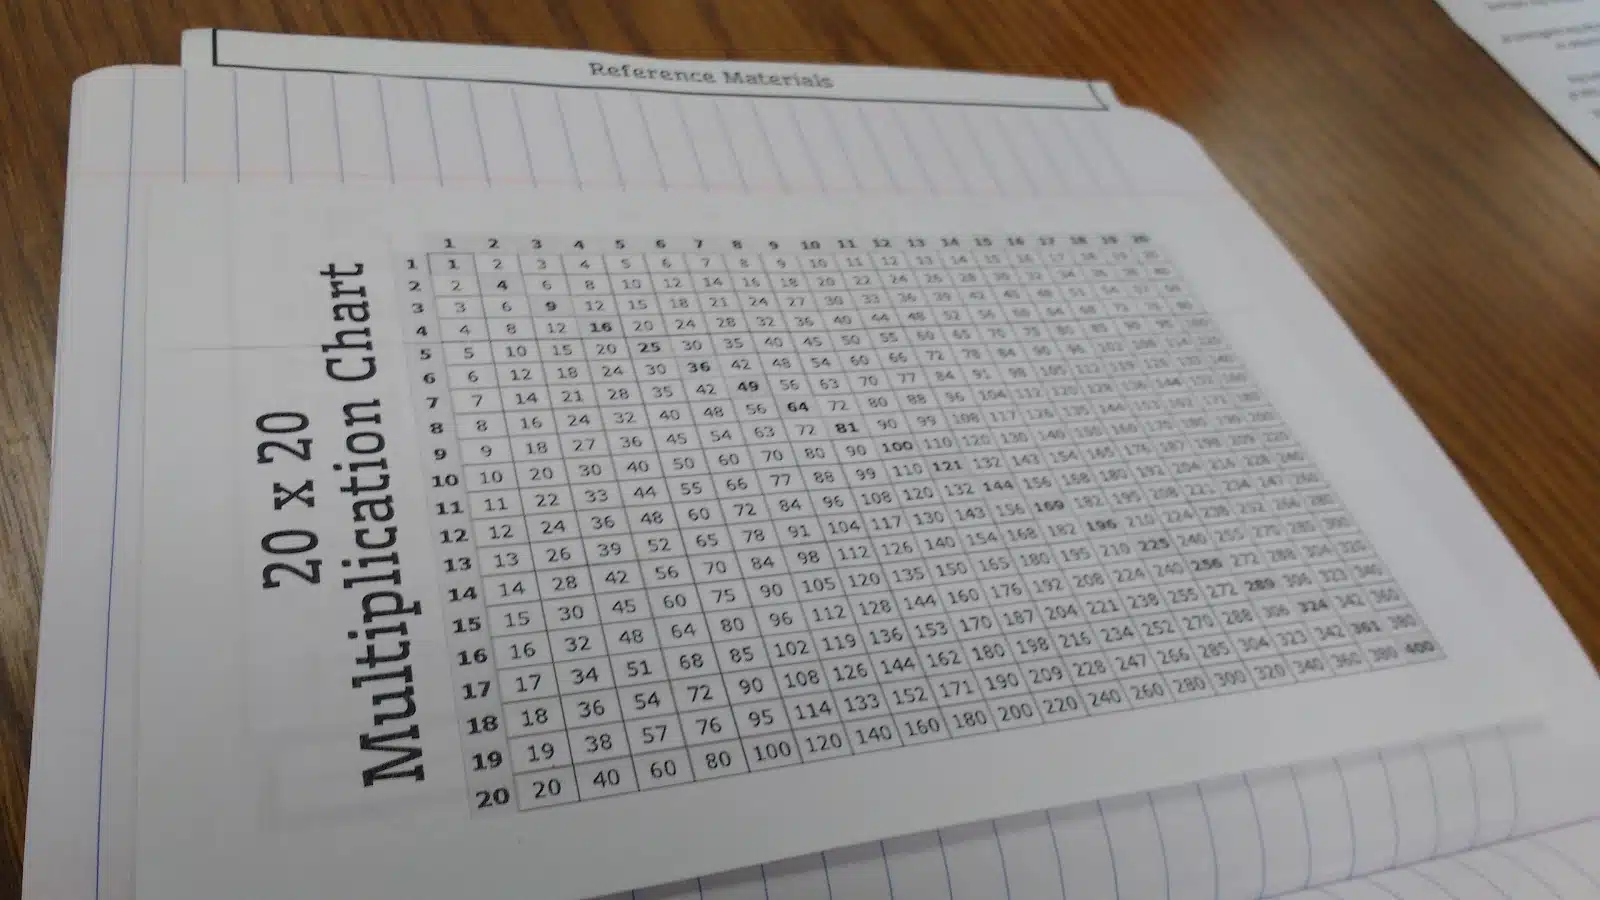 Reference Materials
20 x 20
Multiplication Chart
1 2 3 4 5 6 7 8 9 10 11 12 13 14 15 16 17 18 19 20
1 1 2 3 4 5 6 7 8 9 10 11 12 13 14 15 16 17 18 19 20
2 2 4 6 8 10 12 14 16 18 20 22 24 26 28 30 32 34 36 38 40
3 3 6 9 12 15 18 21 24 27 30 33 36 39 42 45 48 51 54 57 60
4 4 8 12 16 20 24 28 32 36 40 44 48 52 56 60 64 68 72 76 80
5 5 10 15 20 25 30 35 40 45 50 55 60 65 70 75 80 85 90 95 100
6 6 12 18 24 30 36 42 48 54 60 66 72 78 84 90 96 102 108 114 120
7 7 14 21 28 35 42 49 56 63 70 77 84 91 98 105 112 119 126 133 140
8 8 16 24 32 40 48 56 64 72 80 88 96 104 112 120 128 136 144 152 160
9 9 18 27 36 45 54 63 72 81 90 99 108 117 126 135 144 153 162 171 180
10 10 20 30 40 50 60 70 80 90 100 110 120 130 140 150 160 170 180 190 200
11 11 22 33 44 55 66 77 88 99 110 121 132 143 154 165 176 187 198 209 220
12 12 24 36 48 60 72 84 96 108 120 132 144 156 168 180 192 204 216 228 240
13 13 26 39 52 65 78 91 104 117 130 143 156 169 182 195 208 221 234 247 260
14 14 28 42 56 70 84 98 112 126 140 154 168 182 196 210 224 238 252 266 280
15 15 30 45 60 75 90 105 120 135 150 165 180 195 210 225 240 255 270 285 300
16 16 32 48 64 80 96 112 128 144 160 176 192 208 224 240 256 272 288 304 320
17 17 34 51 68 85 102 119 136 153 170 187 204 221 238 255 272 289 306 323 340
18 18 36 54 72 90 108 126 144 162 180 198 216 234 252 270 288 306 324 342 360
19 19 38 57 76 95 114 133 152 171 190 209 228 247 266 285 304 323 342 361 380
20 20 40 60 80 100 120 140 160 180 200 220 240 260 280 300 320 340 360 380 400